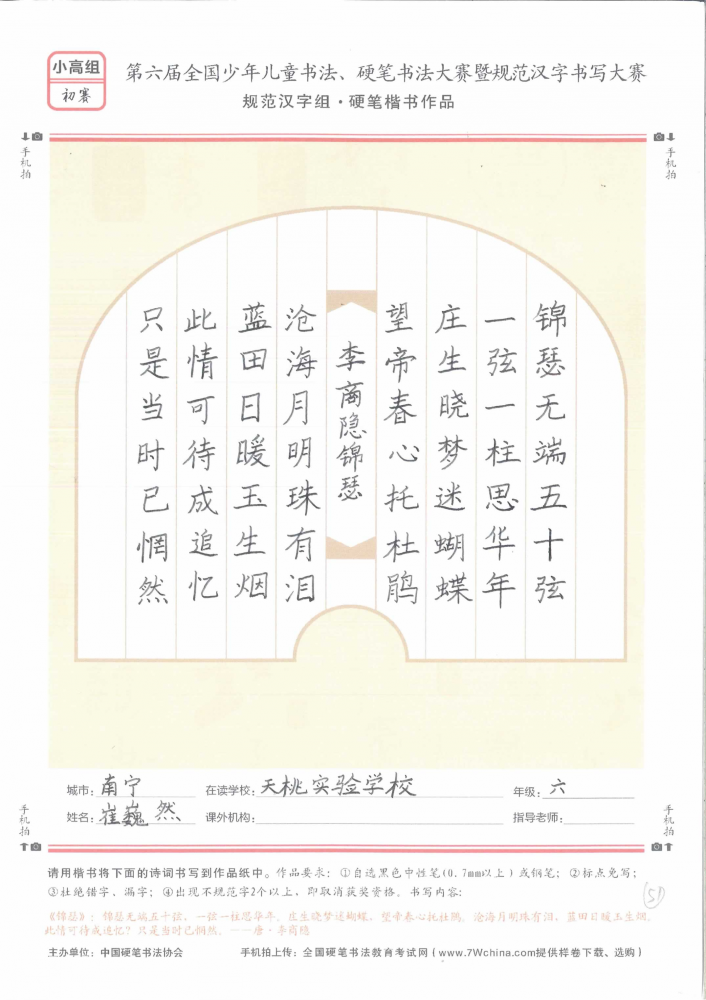 小高组
初赛
第六届全国少年儿童书法、硬笔书法大赛暨规范汉字书写大赛
规范汉字组·硬笔楷书作品
手机拍
手机拍
锦瑟无端五十弦
一弦一柱思华年
庄生晓梦迷蝴蝶
望帝春心托杜鹃
李商隐锦瑟
沧海月明珠有泪
蓝田日暖玉生烟
此情可待成追忆
只是当时已惘然
城市：南宁 在读学校：天桃实验学校 年级：六
姓名：崔巍然 课外机构： 指导老师：
手机拍
手机拍
请用楷书将下面的诗词书写到作品纸中。作品要求：①自选黑色中性笔(0.7mm以上)或钢笔；②标点免写；
③杜绝错字、漏字；④出现不规范字2个以上，即取消获奖资格。书写内容：
51
《锦瑟》：锦瑟无端五十弦，一弦一柱思华年。庄生晓梦迷蝴蝶，望帝春心托杜鹃。沧海月明珠有泪，蓝田日暖玉生烟。
此情可待成追忆？只是当时已惘然。——唐·李商隐
主办单位：中国硬笔书法协会 手机拍上传：全国硬笔书法教育考试网（www.7Wchina.com提供样卷下载、选购）